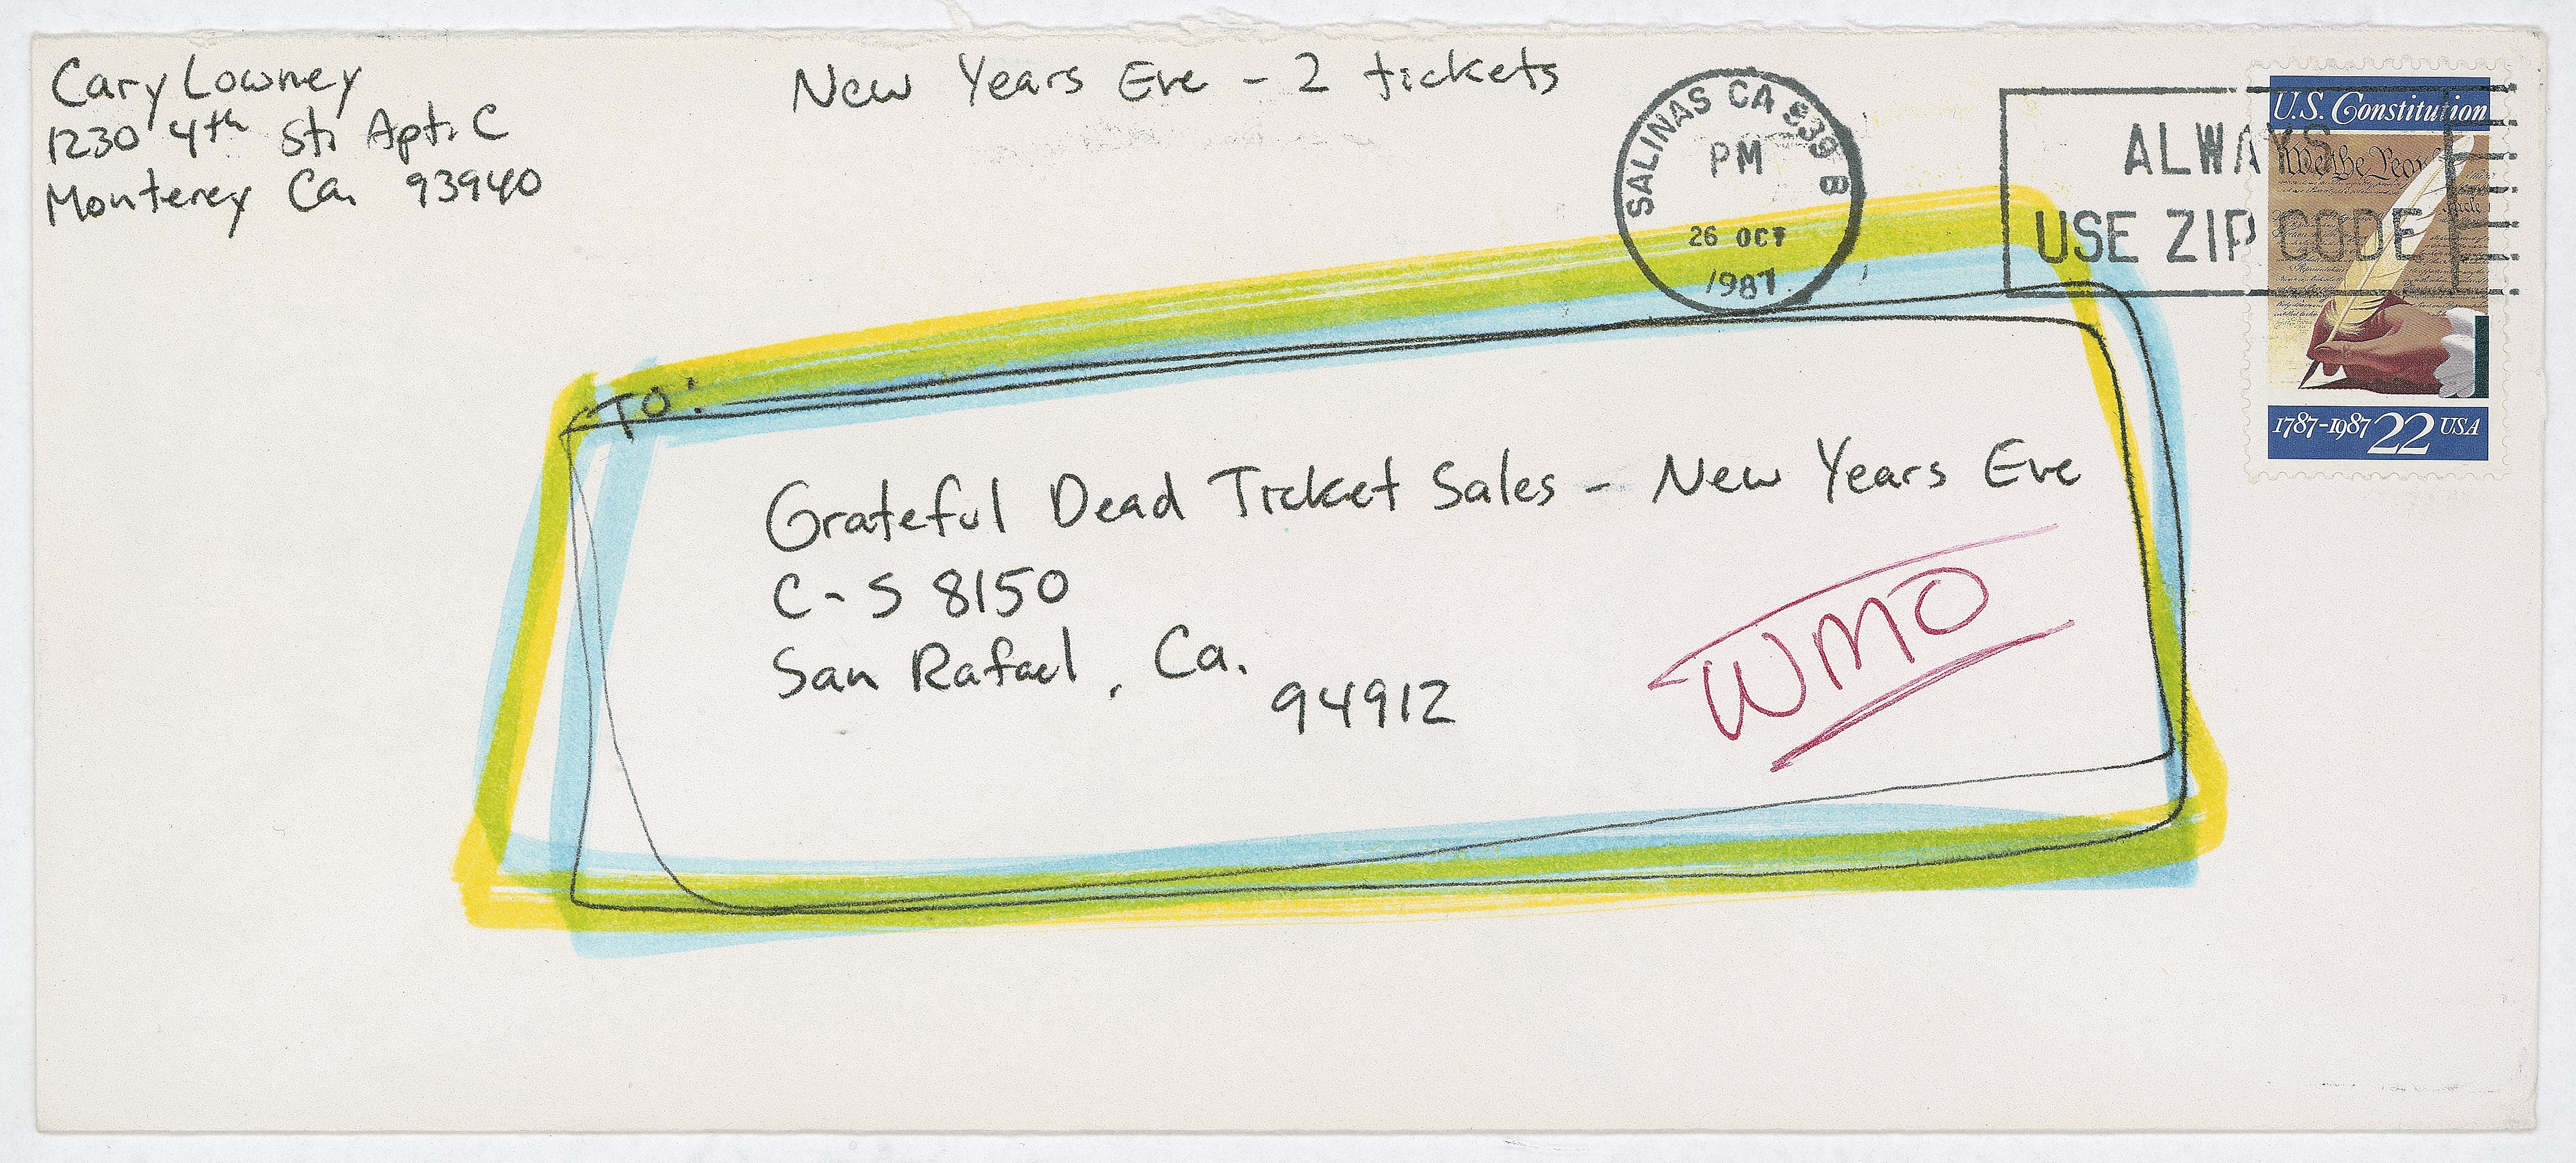 Cary Lowney
1230 4th St. Apt. C
Monterey Ca. 93940
New Years Eve - 2 tickets
SALINAS CA 939 B
PM
26 OCT
1987
ALWAYS
USE ZIP CODE
U.S. Constitution
We the Peop
icle
1787-1987 22 USA
TO:
Grateful Dead Ticket Sales - New Years Eve
C-S 8150
San Rafael, Ca.
94912
WMO